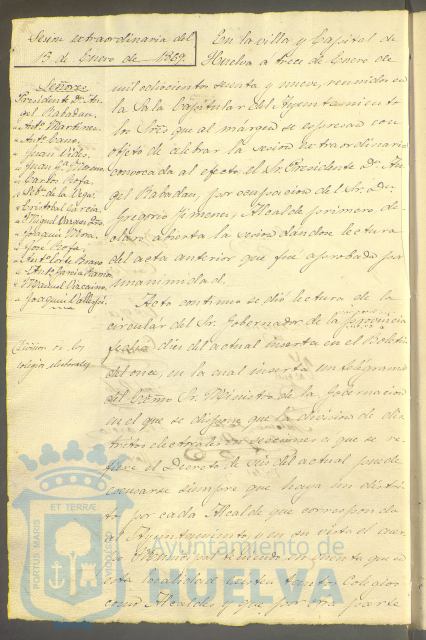 Sesion extraordinaria del
13 de Enero de 1869.
Señores
Presidente Dn. An-
gel Rabadan.
" Antº Martinez
" Antº Cano
" Juan Vides
" Juan Gª Moreno
" Carlos Rofa
" Sebn de la Vega
" Cristobal Garcia
" Miguel Vazquez
" Joaquin Mora
" José Rofa
" Antº Corte Bravo
" Antº Garcia Ramos
" Manuel Vizcaino
" Joaquin Vallejo
Division de los
colegios electorales
En la villa y Capital de
Huelva a trece de Enero de
mil ochocientos sesenta y nueve, reunidos en
la Sala Capitular del Ayuntamiento
los Sres que al márgen se espresan con
objeto de celebrar la sesion extraordinaria
convocada al efecto, el Sr. Presidente Dn. An-
gel Rabadan, por ocupacion del Sr. Dn.
Gregorio Jimenez, Alcalde primero, de-
claró abierta la sesion dandose lectura
del acta anterior que fue aprobada por
unanimidad.
Acto continuo se dió lectura de la
circular del Sr. Gobernador de la provincia
fecha diez del actual inserta en el Boletin
del once, en la cual inserta un telégrama
del Exsmo Sr. Ministro de la Gobernacion
en el que se dispone que la division de dis-
tritos electorales o secciones a que se re-
fiere el Decreto de seis del actual puede
siempre que haya un distri-
to por cada Alcalde que corresponda
al Ayuntamiento, y en su vista el
teniendo presente que en
esta localidad tantos Colegios
como Alcaldes y que por otra parte
PORTUS MARIS
ET TERRAE
CUSTODIA
Ayuntamiento de
HUELVA